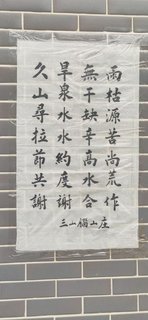 雨枯源苦尚荒作
無干缺辛高水合
旱泉水水約度謝
久山尋拉節共謝
三山領山庄